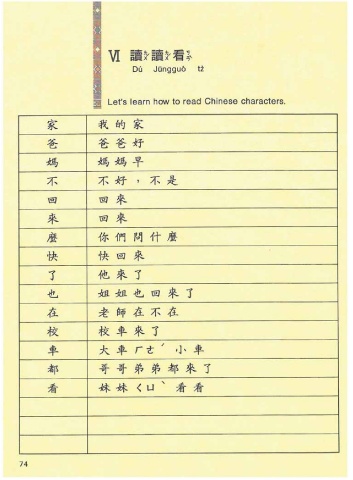 VI 讀讀看
Dú Jūngguó tż
Let's learn how to read Chinese characters.
家 我的家
爸 爸爸好
媽 媽媽早
不 不好，不是
回 回來
來 回來
麼 你們問什麼
快 快回來
了 他來了
也 姐姐也回來了
在 老師在不在
校 校車來了
車 大車ㄏㄜˊ小車
都 哥哥弟弟都來了
看 妹妹ㄑㄩˋ看看
74